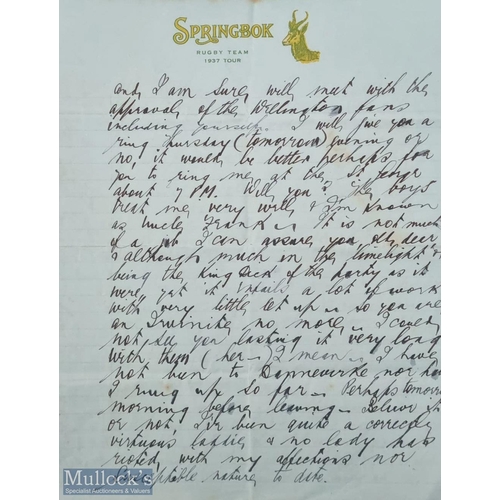 SPRINGBOK
RUGBY TEAM
1937 TOUR
and, I am sure, will meet with the
approval of the Wellington fans
including yourself. I will give you a
ring Thursday (tomorrow) evening or
no, it would be better perhaps for
you to ring me at the St George
about 7 P.M. Will you? The boys
treat me very well & I'm known
as Uncle Frank. It is not much
of a job I can assure you old dear
& although much in the "limelight" &
being the King of the party as it
were, yet it entails a lot of work
with very little let up so you are
an no more. I could
not see you lasting it very long
with them (her) I mean. I have
not been to Dannevirke nor have
I rung up so far. Perhaps tomorrow
morning before leaving. Believe it
or not, I've been quite a correctly
virtuous laddie & no lady has
rioted with my affections nor
susceptible nature to date.
Mullock's
Specialist Auctioneers & Valuers